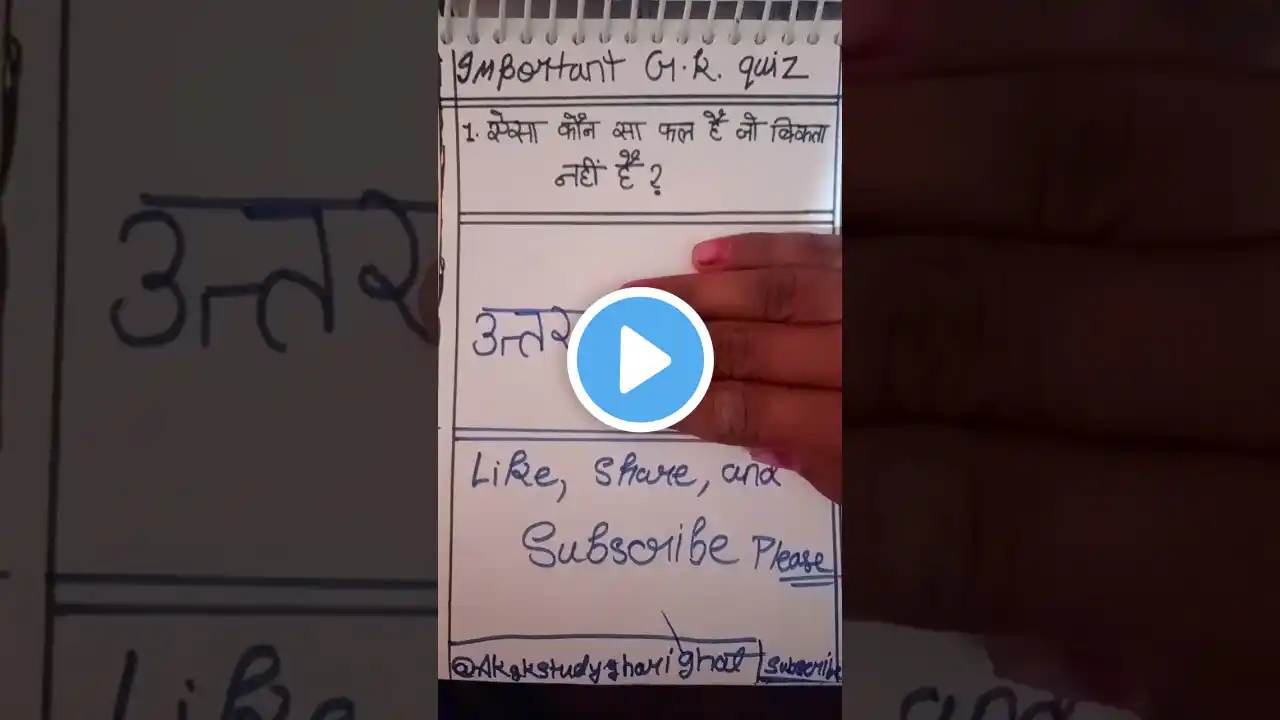 Important G.K. quiz
1. ऐसा कौन सा फल है जो बिकता
नहीं है ?
उत्तर
Like, Share, and
Subscribe Please
@Akgkstudygharighat Subscribe